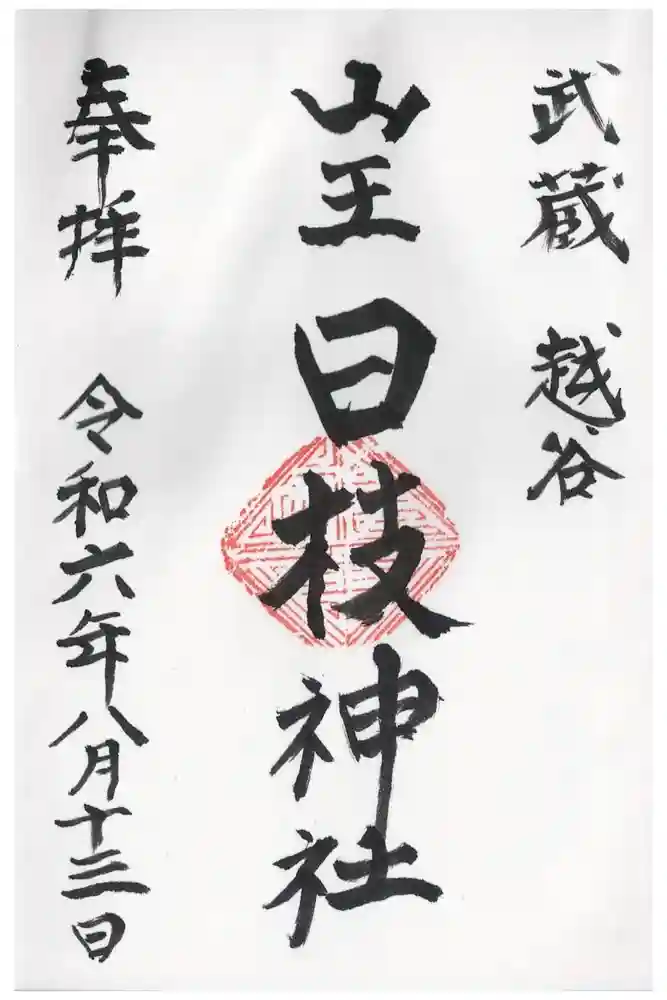 武蔵 越谷
山王 日枝神社
奉拝 令和六年八月十三日